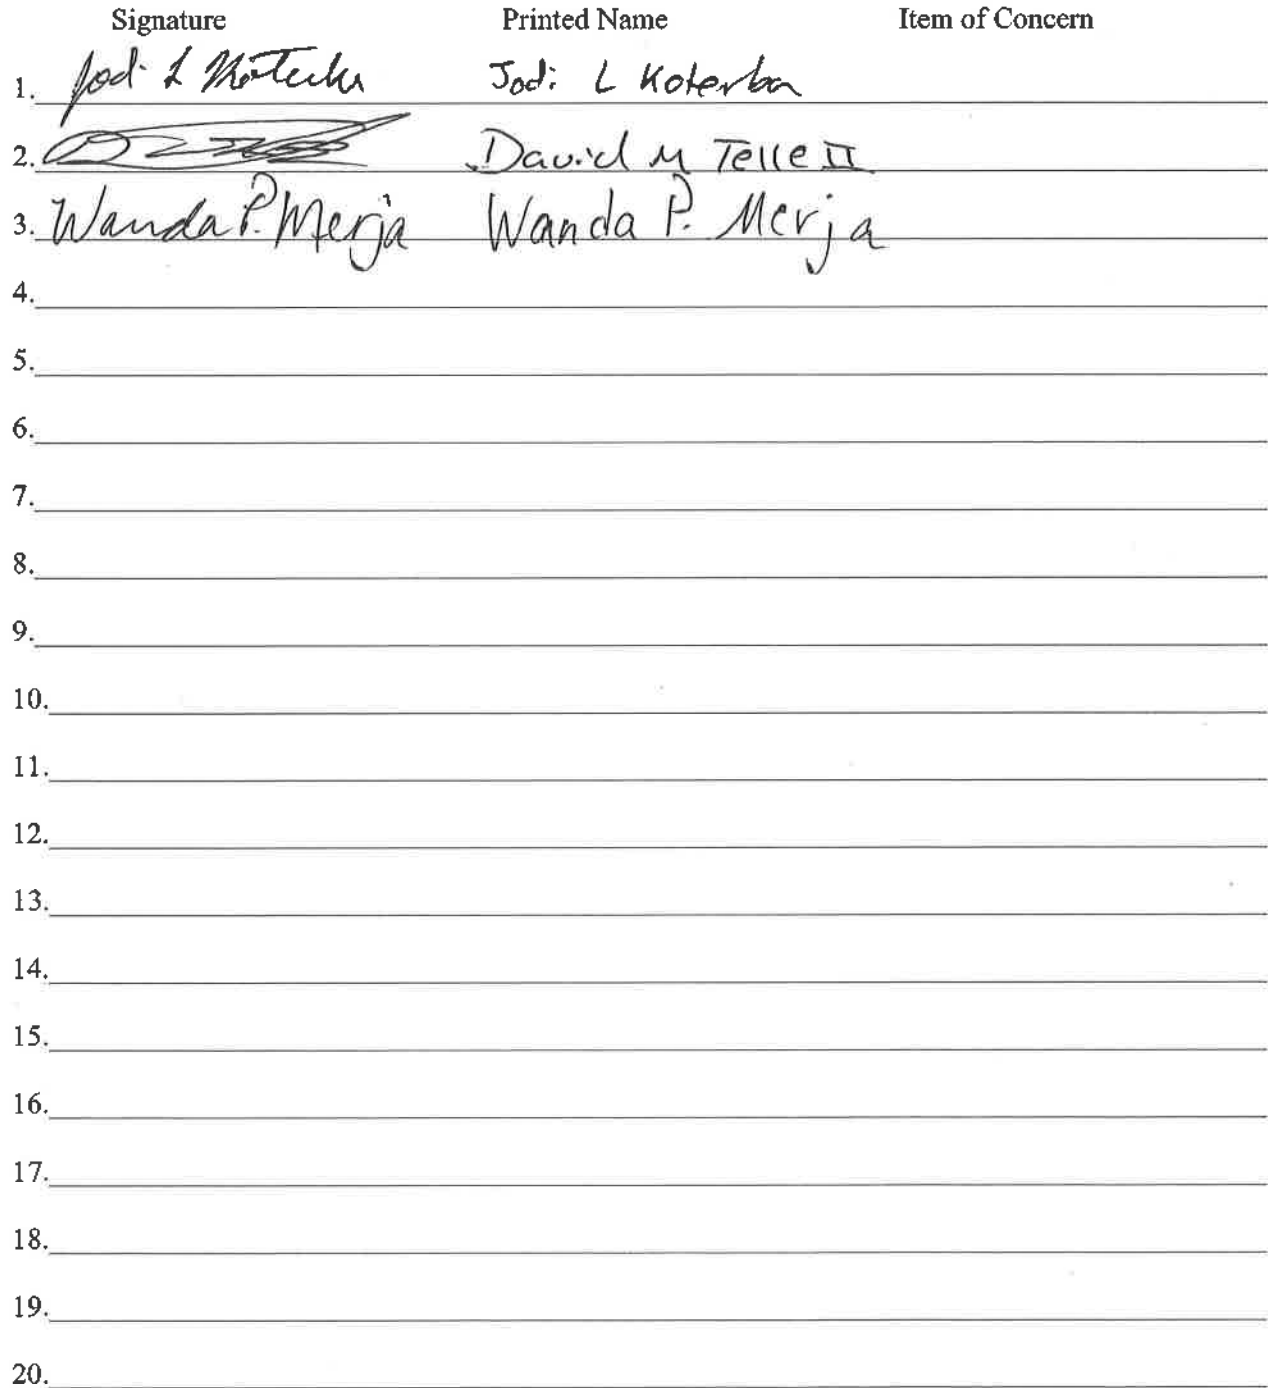 Signature Printed Name Item of Concern
1. Jodi L Koterba Jodi L Koterba
2. David M Telle II
3. Wanda P. Merja Wanda P. Merja
4.
5.
6.
7.
8.
9.
10.
11.
12.
13.
14.
15.
16.
17.
18.
19.
20.